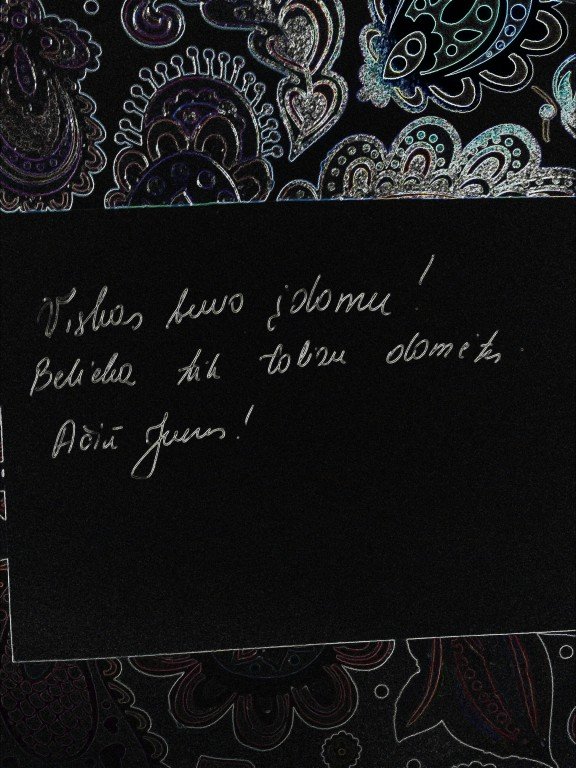 Viskas buvo įdomu!
Belieka tik toliau domėtis.
Ačiū Jums!